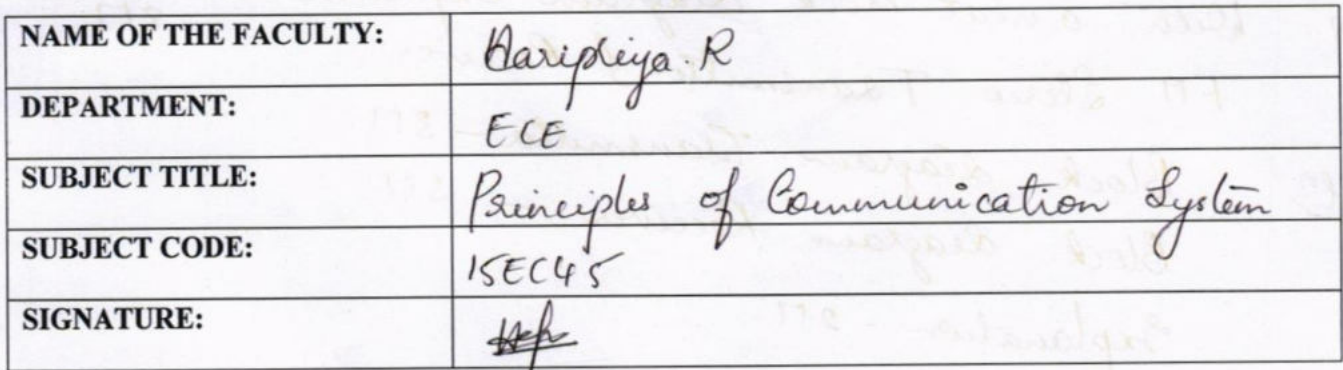 NAME OF THE FACULTY: Haripriya. R
DEPARTMENT: ECE
SUBJECT TITLE: Principles of Communication System
SUBJECT CODE: 15EC45
SIGNATURE: